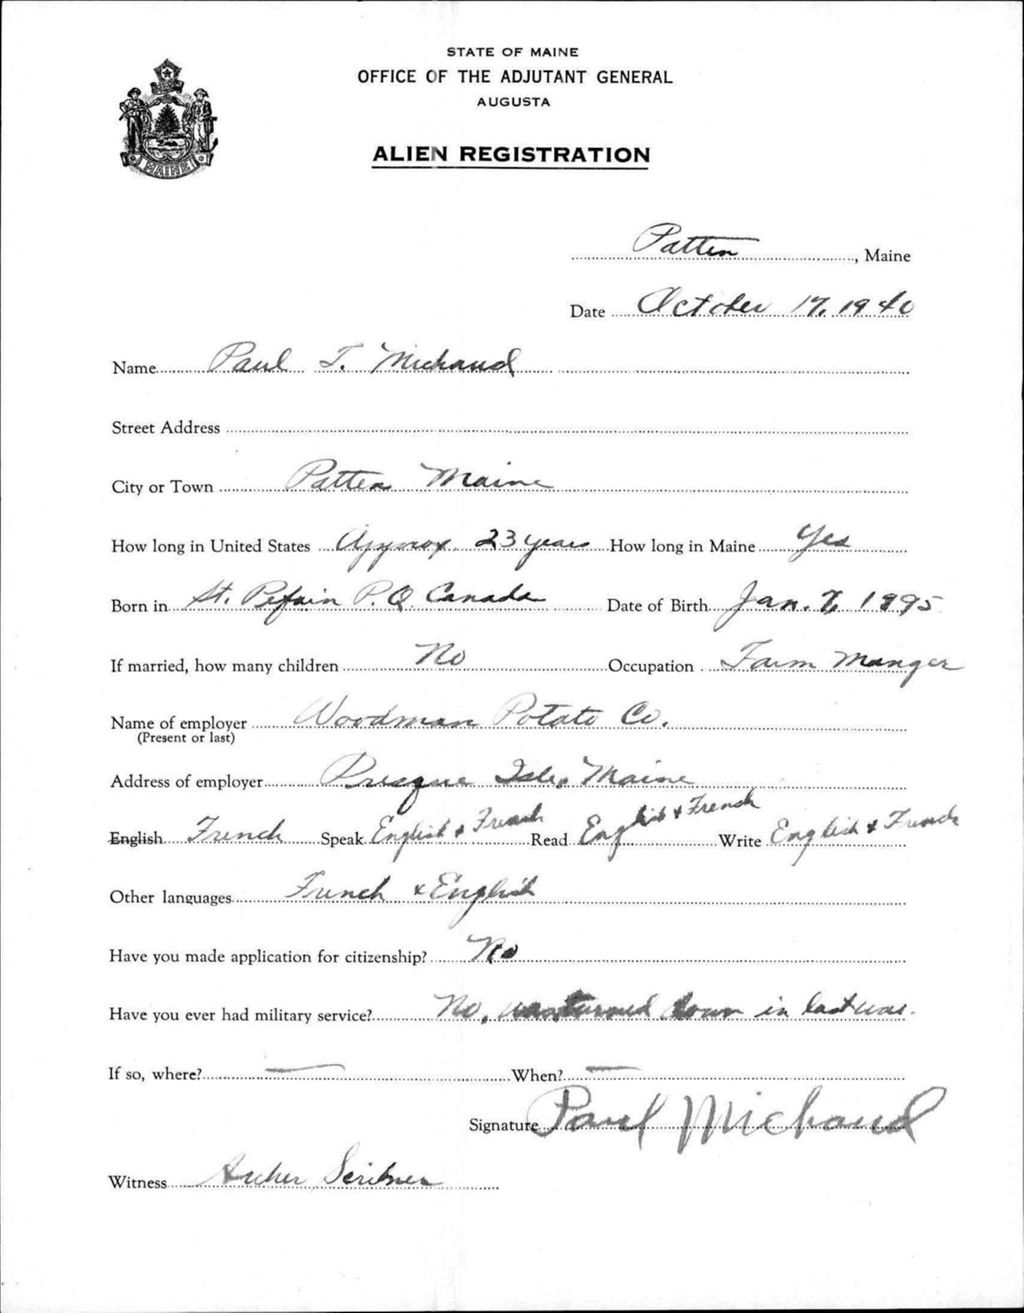 STATE OF MAINE
OFFICE OF THE ADJUTANT GENERAL
AUGUSTA
ALIEN REGISTRATION
MAINE
Patten, Maine
Date October 17, 1940
Name Paul T. Michaud
Street Address
City or Town Patten Maine
How long in United States Approx. 23 years How long in Maine Yes
Born in St. P.Q. Canada Date of Birth Jan. 7, 1895
If married, how many children No Occupation Farm Manger
Name of employer Woodman Potato Co.
(Present or last)
Address of employer Presque Isle, Maine
English French Speak English & French Read English & French Write English & French
Other languages French & English
Have you made application for citizenship? No
Have you ever had military service? No, was turned down in last war.
If so, where? — When? —
Signature Paul Michaud
Witness Scribner